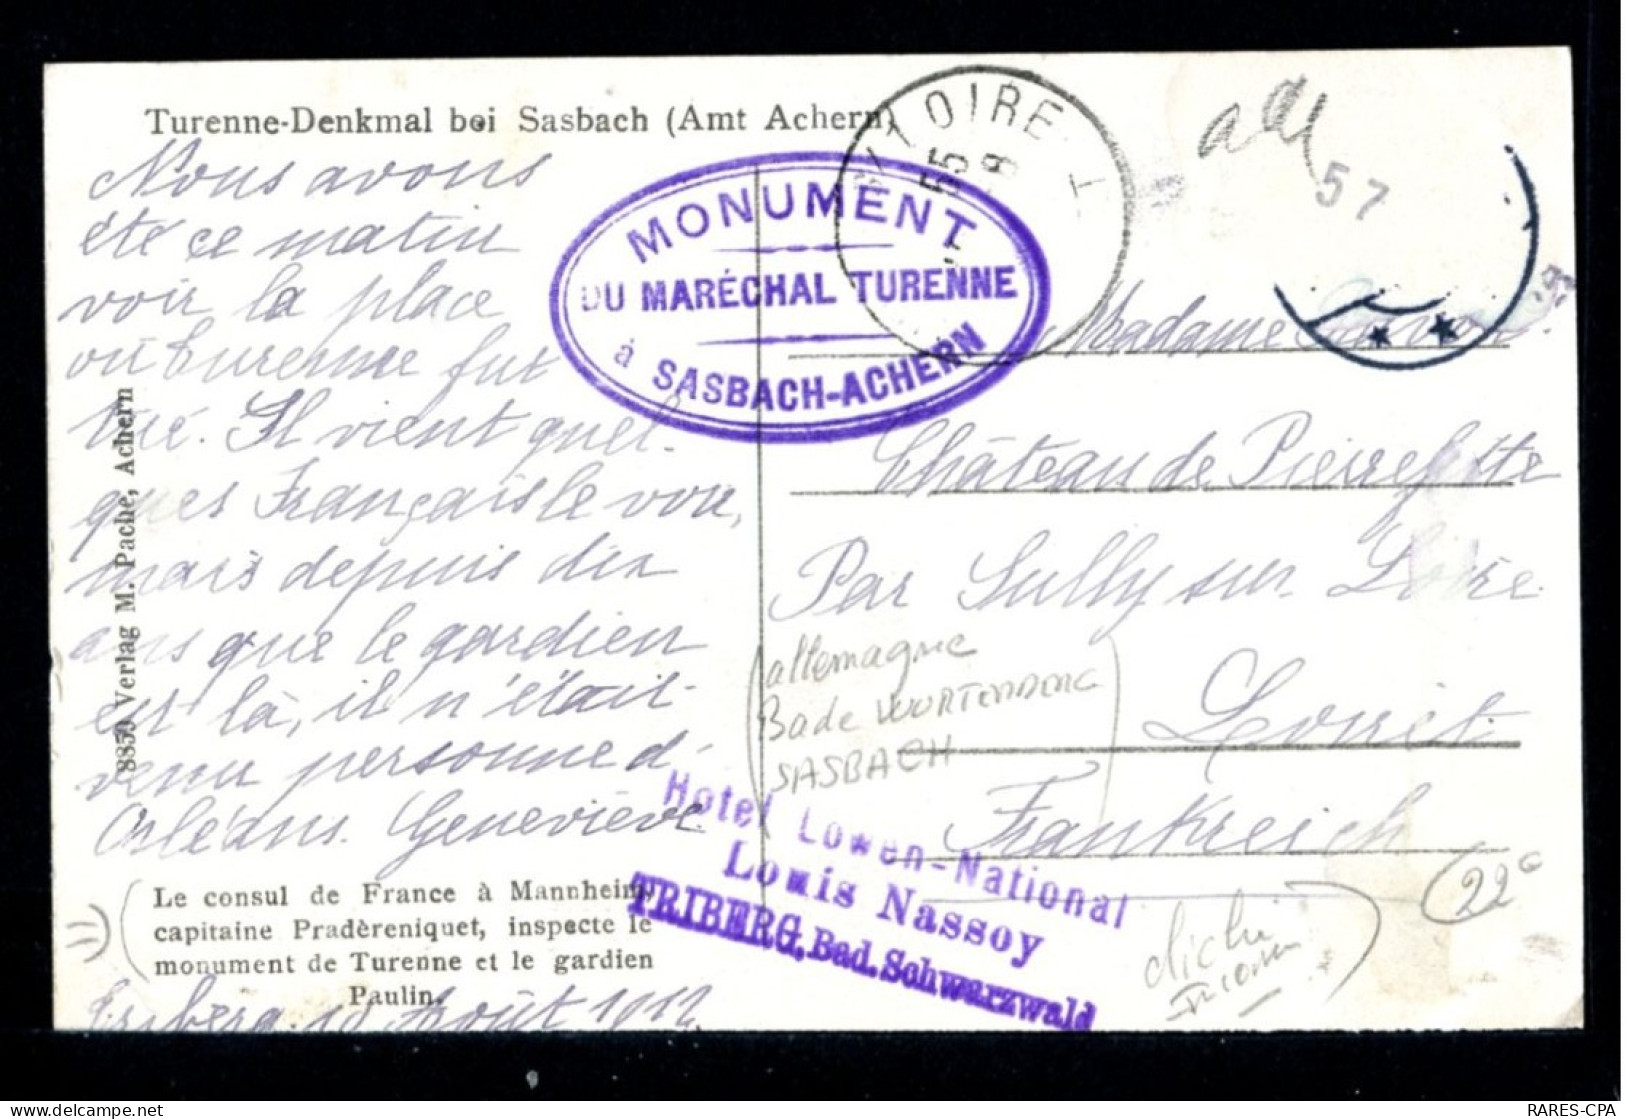 Turenne-Denkmal bei Sasbach (Amt Achern)
Nous avons
été ce matin
voir la place
où Turenne fut
tué. Il vient quel-
ques Français le voir,
mais depuis dix
ans que le gardien
est là, il n'était
venu personne d'
Orléans. Geneviève.
Le consul de France à Mannheim,
capitaine Pradèreniquet, inspecte le
monument de Turenne et le gardien
Paulin.
Triberg. 18 Août 1912
8859 Verlag M. Pache, Achern
MONUMENT
DU MARÉCHAL TURENNE
à SASBACH-ACHERN
LOIRE
55
8
57
Madame
Château de Pierrefitte
Par Sully sur Loire
Loiret.
Frankreich
allemagne
Bade WURTEMBERG
SASBACH
Hotel Lowen-National
Louis Nassoy
TRIBERG, Bad. Schwarzwald
22€
cliché
RARES-CPA